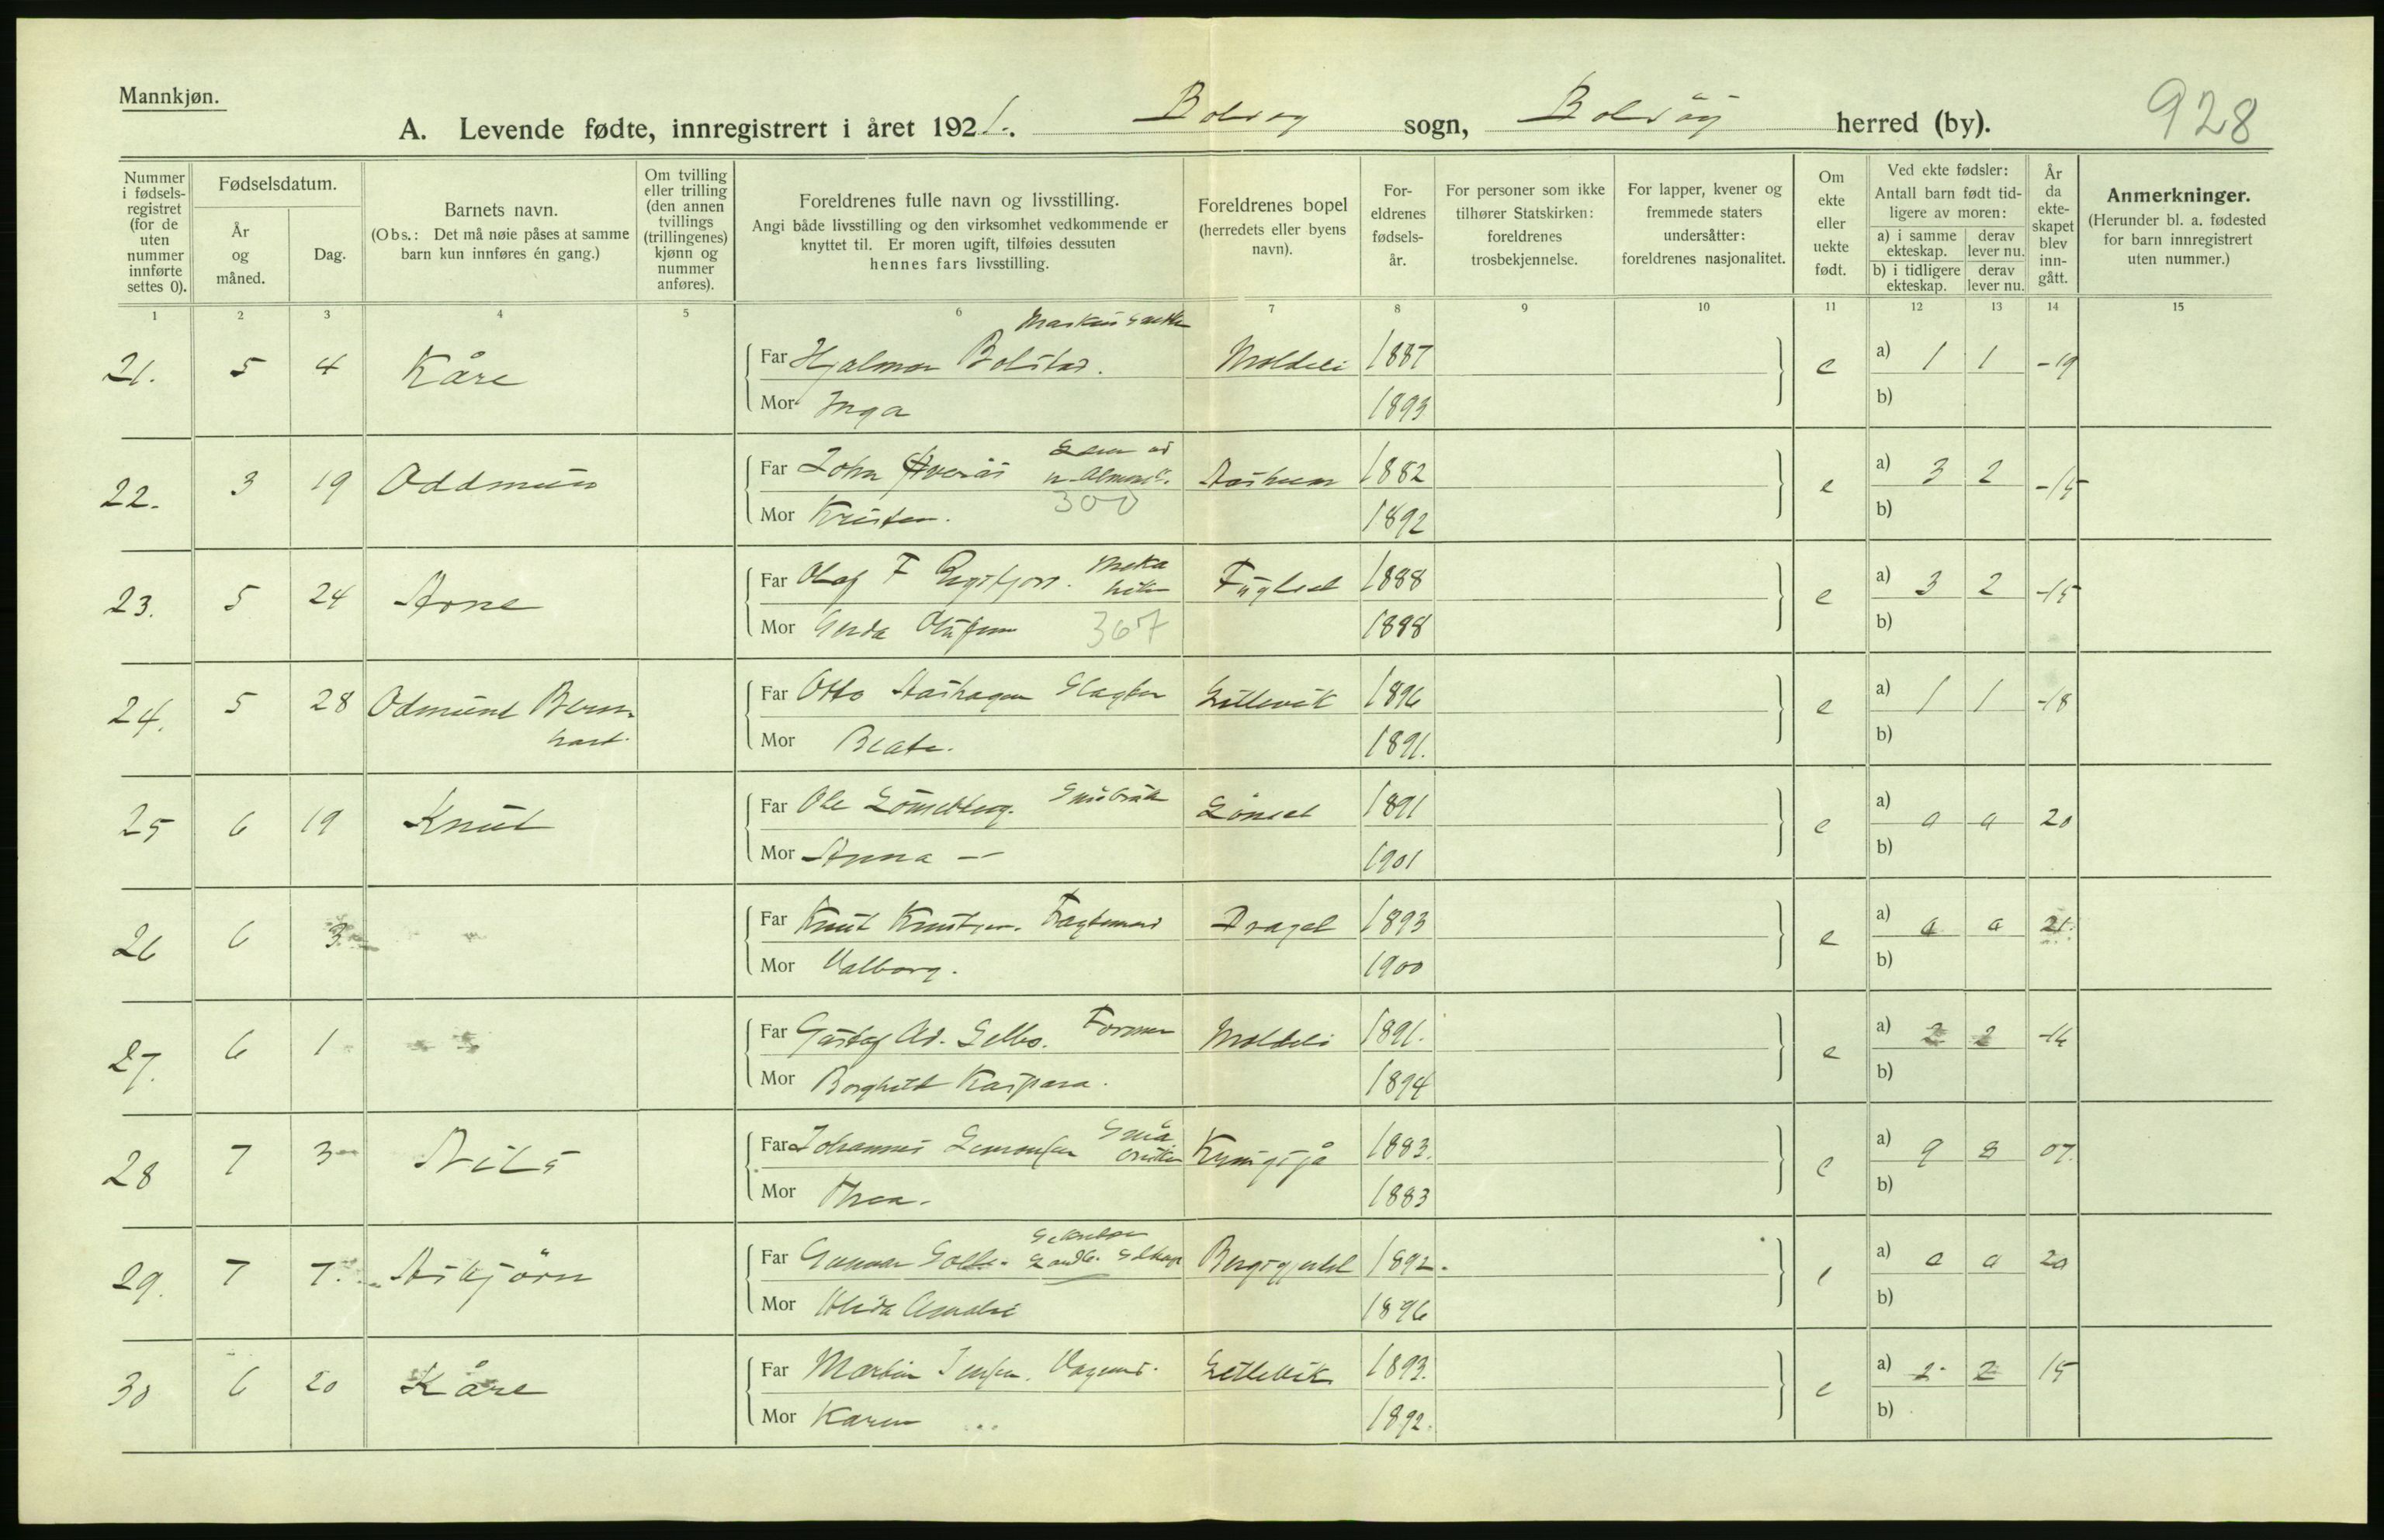 Mannkjøn.
A. Levende fødte, innregistrert i året 1921. Bolsøy sogn, Bolsöy herred (by). 928
Nummer i fødsels-registret (for de uten nummer innførte settes 0).
Fødselsdatum.
År og måned.
Dag.
Barnets navn.
(Obs.: Det må nøie påses at samme barn kun innføres én gang.)
Om tvilling eller trilling (den annen tvillings (trillingenes) kjønn og nummer anføres).
Foreldrenes fulle navn og livsstilling.
Angi både livsstilling og den virksomhet vedkommende er knyttet til. Er moren ugift, tilføies dessuten hennes fars livsstilling.
Foreldrenes bopel (herredets eller byens navn).
For-eldrenes fødsels-år.
For personer som ikke tilhører Statskirken: foreldrenes trosbekjennelse.
For lapper, kvener og fremmede staters undersåtter: foreldrenes nasjonalitet.
Om ekte eller uekte født.
Ved ekte fødsler:
Antall barn født tid-ligere av moren:
a) i samme ekteskap. derav lever nu.
b) i tidligere ekteskap. derav lever nu.
År da ekte-skapet blev inn-gått.
Anmerkninger.
(Herunder bl. a. fødested for barn innregistrert uten nummer.)
1 2 3 4 5 6 7 8 9 10 11 12 13 14 15
21. 5 4 Kåre Far Hjalmar Bolstad. Moldeli 1887 e a) 1 1 -19
Mor Inga 1893 b)
22. 3 19 Oddmun Far John 1882 e a) 3 2 -15
300
Mor Kristen. 1892 b)
23. 5 24 Arne Far Olaf F Fuglset 1888 e a) 3 2 -15
Mor Gerda Olufine 367 1888 b)
24. 5 28 Odmund Bern-hard. Far Otto Aashagen Slagter Lillevik 1896 e a) 1 1 -18
Mor Beate. 1891. b)
25 6 19 Knut Far Ole Lönsetberg. Småbruk Lönset 1891 e a) 0 0 20
Mor Anna — 1901 b)
26 6 3 Far Knut Knutsen. Fragtemand Draget 1893 e a) 0 0 21.
Mor Valborg. 1900 b)
27. 6 1 Far Gustaf Ad. Selbo. Former Moldeli 1891. e a) 2 2 -14
Mor Borghild Kaspara. 1894 b)
28 7 3 Nils Far Johannes Simonsen Små bruker Kringsjå 1883. e a) 9 8 07.
Mor Thea. 1883 b)
29. 7 7. Asbjörn Far Gunnar 1892. e a) 0 0 20
Mor Alida Amalie 1896 b)
30 6 20 Kåre Far Martin Jensen. Lillevik 1893. e a) 2 2 15
Mor Karen 1892. b)